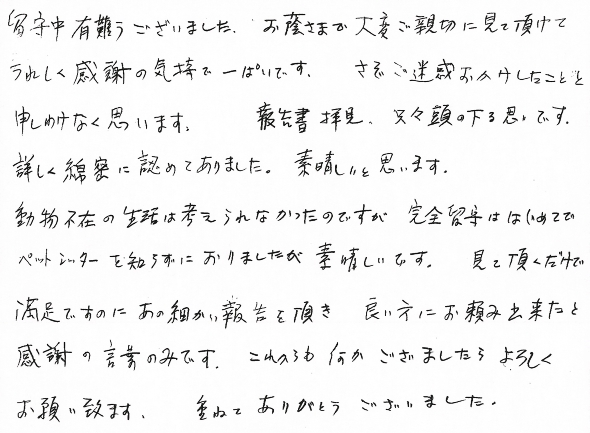 留守中有難うございました. お蔭さまで大変ご親切に見て頂けて
うれしく感謝の気持で一ぱいです. さぞご迷惑おかけしたことと
申しわけなく思います. 報告書拝見、只々頭の下る思いです.
詳しく綿密に認めてありました。素晴しいと思います.
動物不在の生活は考えられなかったのですが 完全留守ははじめてで
ペットシッターを知らずにおりましたが素晴しいです. 見て頂くだけで
満足ですのにあの細かい報告を頂き 良い方にお頼み出来たと
感謝の言葉のみです. これからも何かございましたらよろしく
お願い致ます. 重ねてありがとうございました.